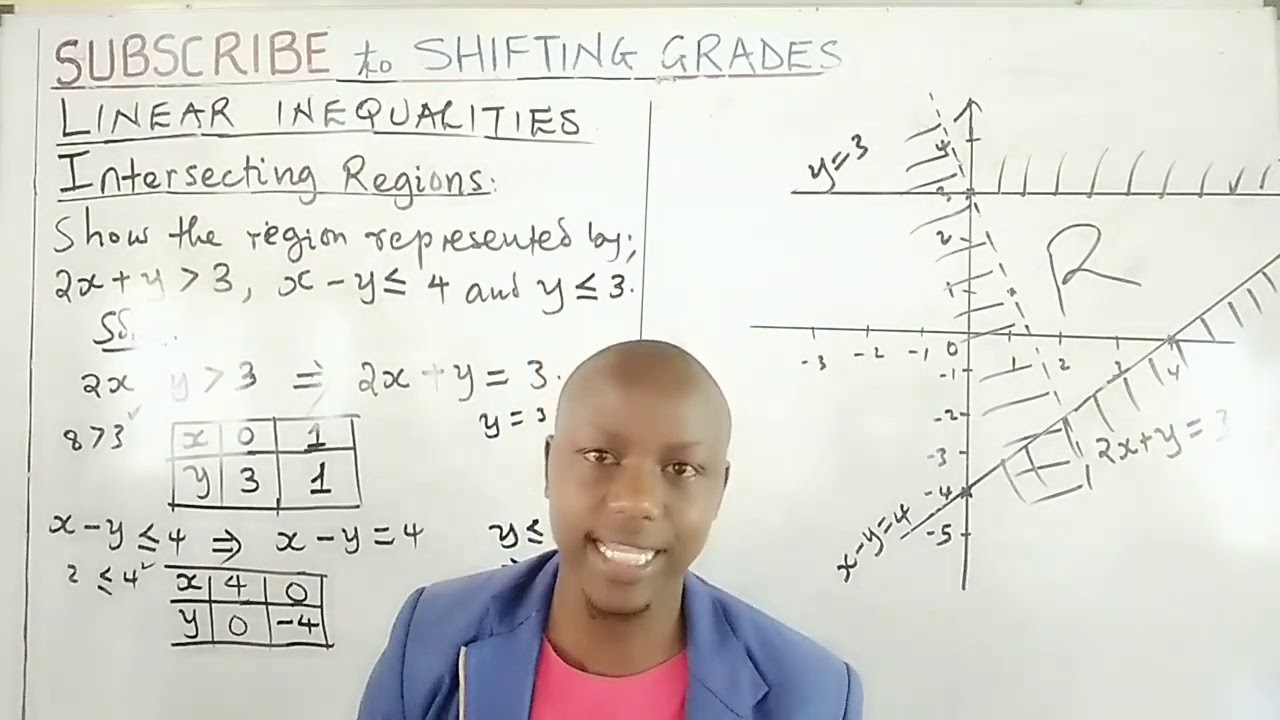 SUBSCRIBE to SHIFTING GRADES
LINEAR INEQUALITIES
Intersecting Regions:
Show the region represented by;
2x + y > 3, x - y ≤ 4 and y ≤ 3.
2x y > 3 ⇒ 2x + y = 3.
8 > 3 ✓
x 0 1
y 3 1
y = 3
x - y ≤ 4 ⇒ x - y = 4
2 ≤ 4 ✓
x 4 0
y 0 -4
y ≤
y = 3
4
3
2
1
R
-3 -2 -1 0 1 2 3 4
-1
-2
-3
-4
-5
2x + y = 3
x - y = 4